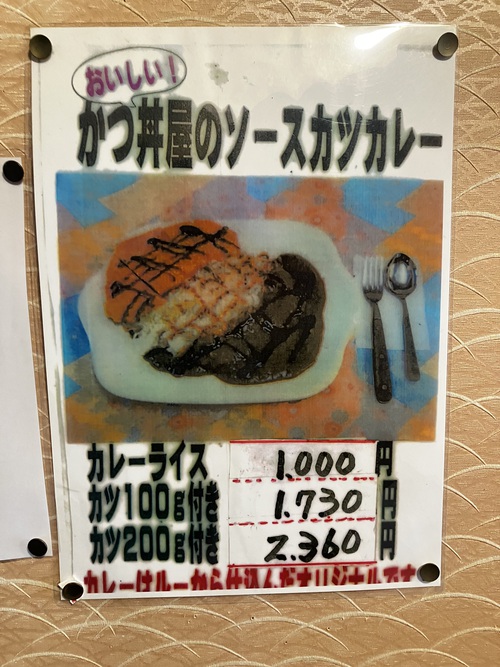 おいしい!
かつ丼屋のソースカツカレー
カレーライス 1.000円
カツ100g付き 1.730円
カツ200g付き 2.360円
カレーはルーから仕込んだオリジナルです